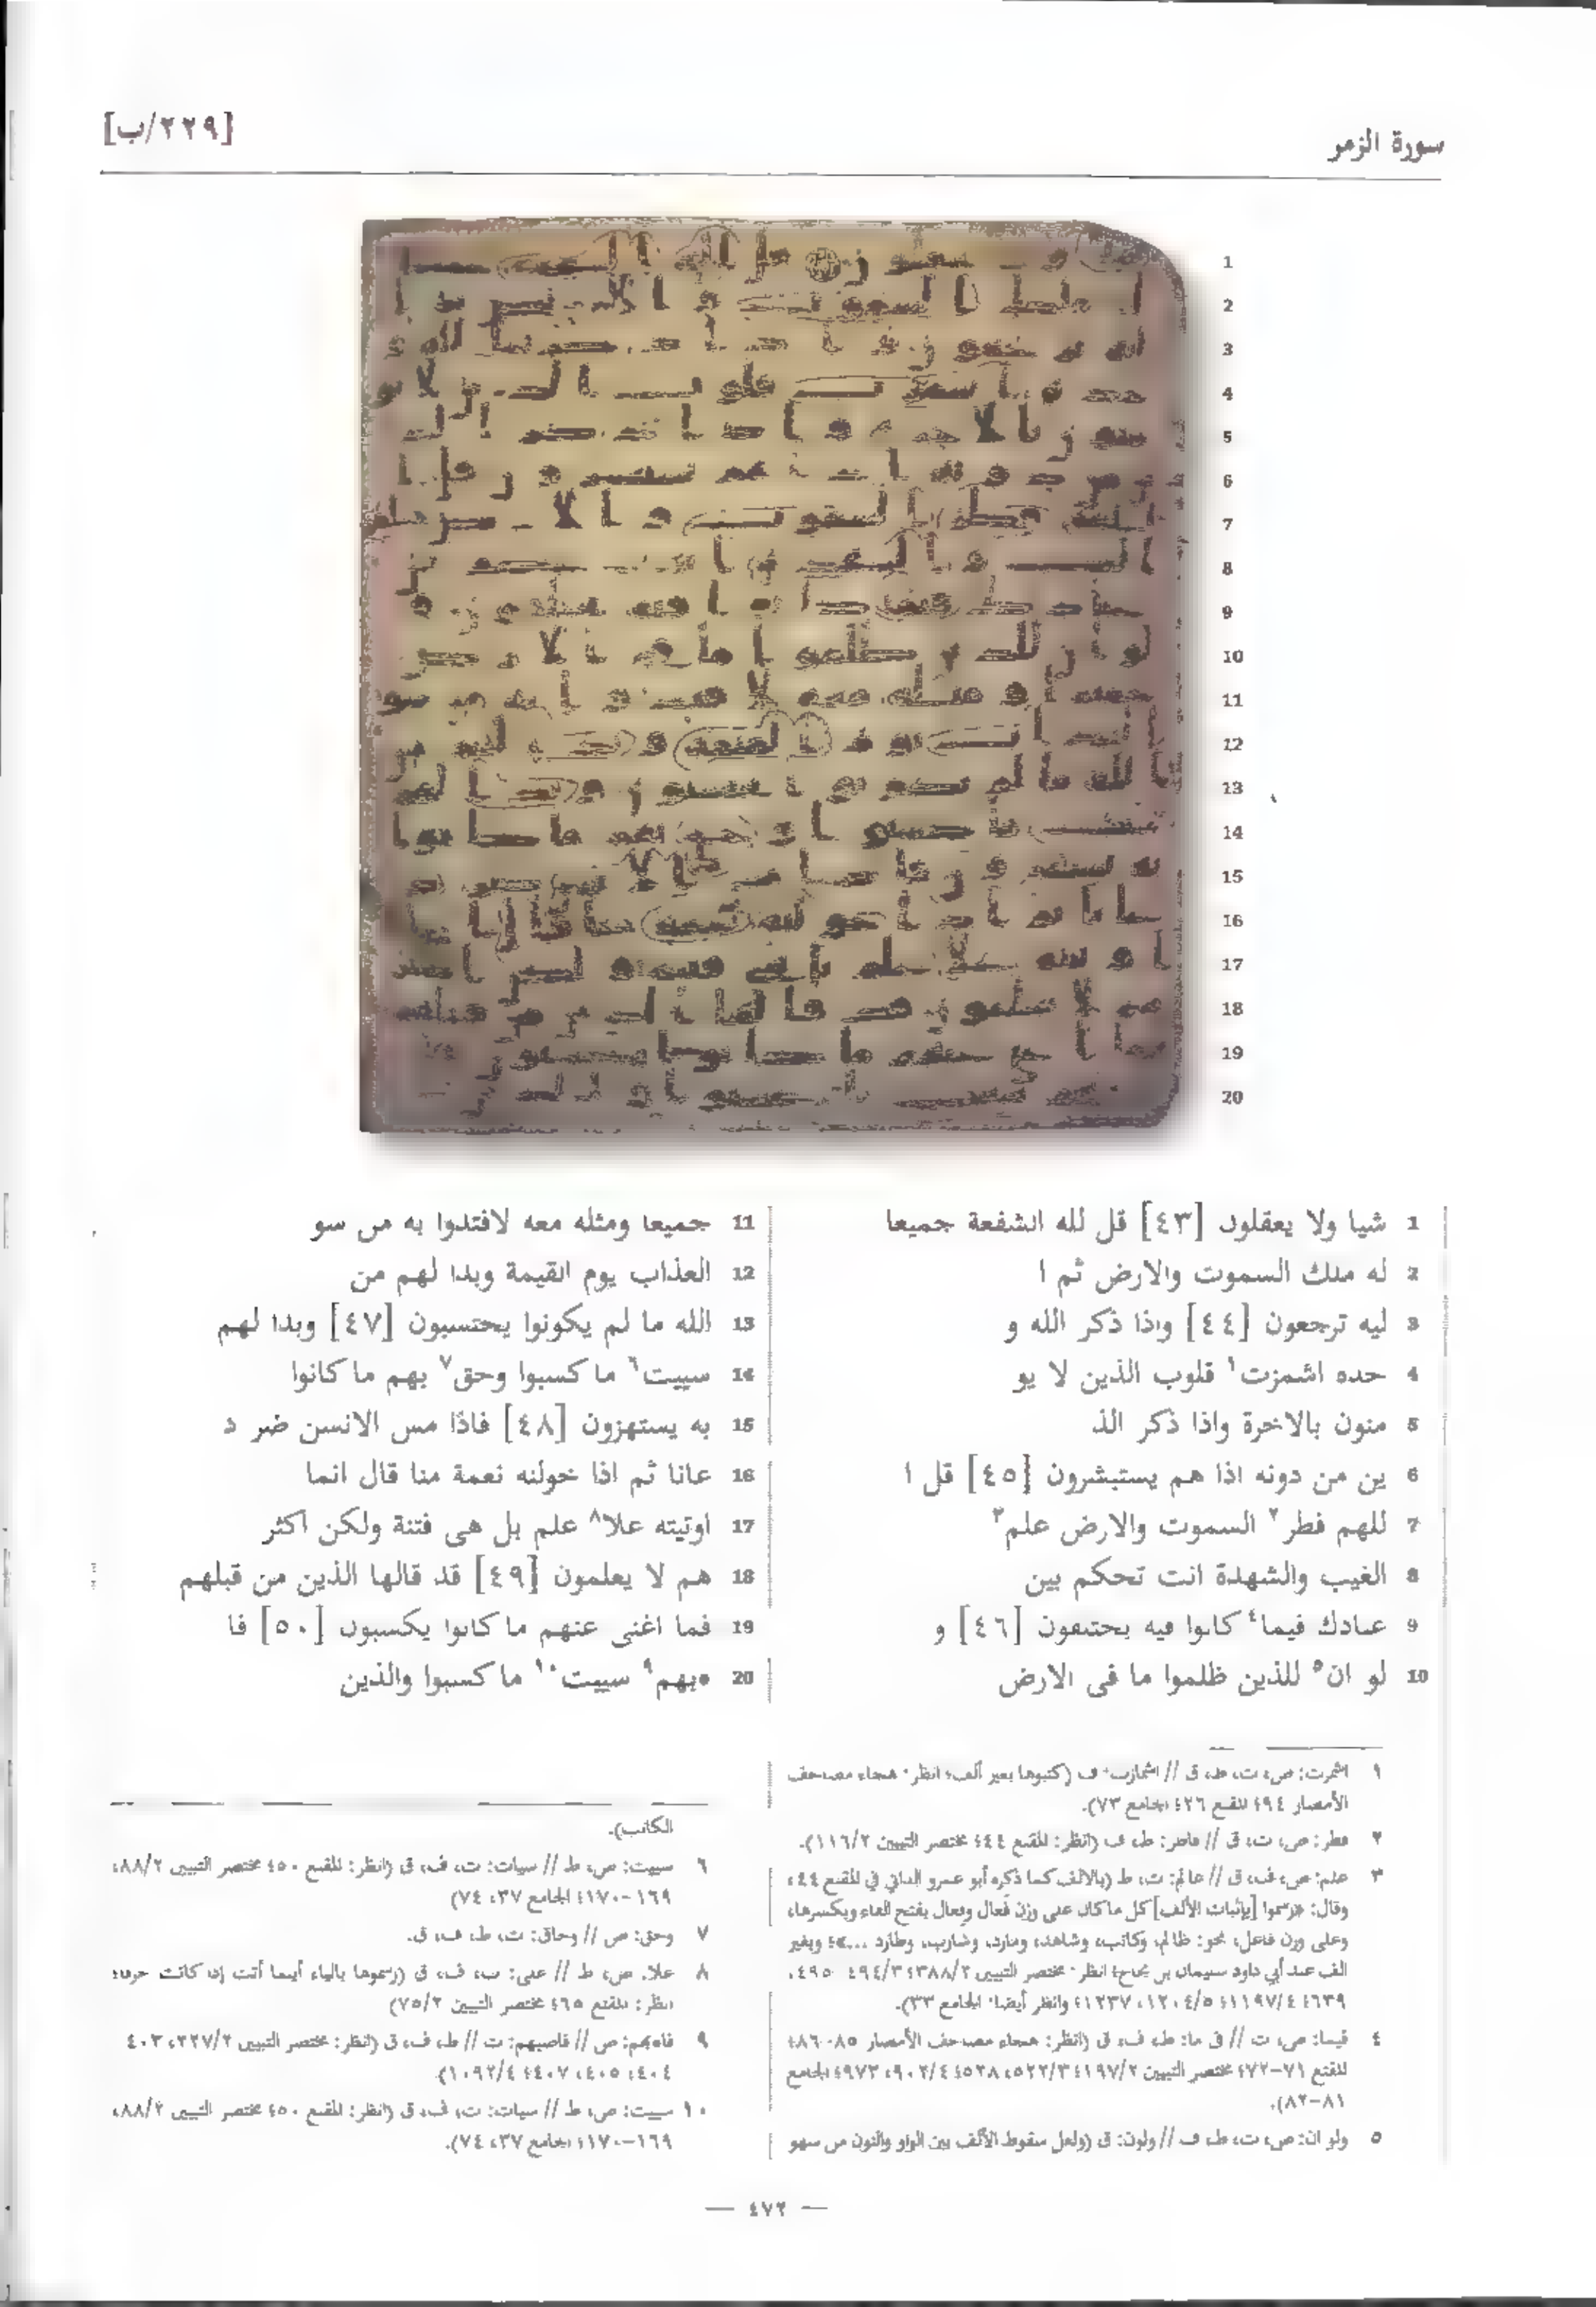 سورة الزمر
[٢٢٩/ب]
1 شيا ولا يعقلون [٤٣] قل لله الشفعة جميعا
2 له ملك السموت والارض ثم ا
3 ليه ترجعون [٤٤] واذا ذكر الله و
4 حده اشمزت١ قلوب الذين لا يو
5 منون بالاخرة واذا ذكر الذ
6 ين من دونه اذا هم يستبشرون [٤٥] قل ا
7 للهم فطر٢ السموت والارض علم٣
8 الغيب والشهدة انت تحكم بين
9 عبادك فيما٤ كانوا فيه يختلفون [٤٦] و
10 لو ان٥ للذين ظلموا ما فى الارض
11 جميعا ومثله معه لافتدوا به من سو
12 العذاب يوم القيمة وبدا لهم من
13 الله ما لم يكونوا يحتسبون [٤٧] وبدا لهم
14 سييت٦ ما كسبوا وحق٧ بهم ما كانوا
15 به يستهزون [٤٨] فاذا مس الانسن ضر د
16 عانا ثم اذا خولنه نعمة منا قال انما
17 اوتيته علا٨ علم بل هى فتنة ولكن اكثر
18 هم لا يعلمون [٤٩] قد قالها الذين من قبلهم
19 فما اغنى عنهم ما كانوا يكسبون [٥٠] فا
20 ٥بهم٩ سييت١٠ ما كسبوا والذين
١ اشمزت: ص، ت، ط، ق // اشمازت: ف (كتبوها بغير ألف؛ انظر: هجاء مصاحف
الأمصار ٩٤؛ المقنع ٤٢٦؛ الجامع ٧٣).
٢ فطر: ص، ت، ق // فاطر: ط، ف (انظر: المقنع ٤٤؛ مختصر التبيين ١١٦/٢).
٣ علم: ص، ف، ق // عالم: ت، ط (بالالف كما ذكره أبو عمرو الداني في المقنع ٤٤،
وقال: «رسموا [بإثبات الألف] كل ما كان على وزن فَعال وفِعال بفتح الفاء وبكسرها،
وعلى وزن فاعل، نحو: ظالم، وكاتب، وشاهد، ومارد، وشارب، وطارد ...»؛ وبغير
الف عند أبي داود سليمان بن نجاح؛ انظر: مختصر التبيين ٣٨٨/٢؛ ٤٩٤/٣، ٤٩٥،
٦٣٩؛ ١١٩٧/٤؛ ١٢٠٤/٥، ١٢٣٧؛ وانظر أيضا: الجامع ٣٣).
٤ فيما: ص، ت // في ما: ط، ف، ق (انظر: هجاء مصاحف الأمصار ٨٥-٨٦؛
المقنع ٧١-٧٢؛ مختصر التبيين ١٩٧/٢؛ ٥٢٢/٣، ٥٢٨؛ ٩٠٢/٤، ٩٧٣؛ الجامع
٨١-٨٢).
٥ ولو ان: ص، ت، ط، ف // ولون: ق (ولعل سقوط الألف بين الواو والنون من سهو
الكاتب).
٦ سييت: ص، ط // سيات: ت، ف، ق (انظر: المقنع ٥٠؛ مختصر التبيين ٨٨/٢،
١٦٩-١٧٠؛ الجامع ٣٧، ٧٤)
٧ وحق: ص // وحاق: ت، ط، ف، ق.
٨ علا: ص، ط // على: ت، ف، ق (رسموها بالياء أينما أتت إذا كانت حرفا؛
انظر: المقنع ٦٥؛ مختصر التبيين ٧٥/٢)
٩ فابهم: ص // فاصبهم: ت // ط، ف، ق (انظر: مختصر التبيين ٢٢٧/٢، ٤٠٣
٤٠٤؛ ٤٠٥، ٤٠٧؛ ١٠٩٢/٤).
١٠ سييت: ص، ط // سيات: ت، ف، ق (انظر: المقنع ٥٠؛ مختصر التبيين ٨٨/٢،
١٦٩-١٧٠؛ الجامع ٣٧، ٧٤).
— ٤٧٢ —